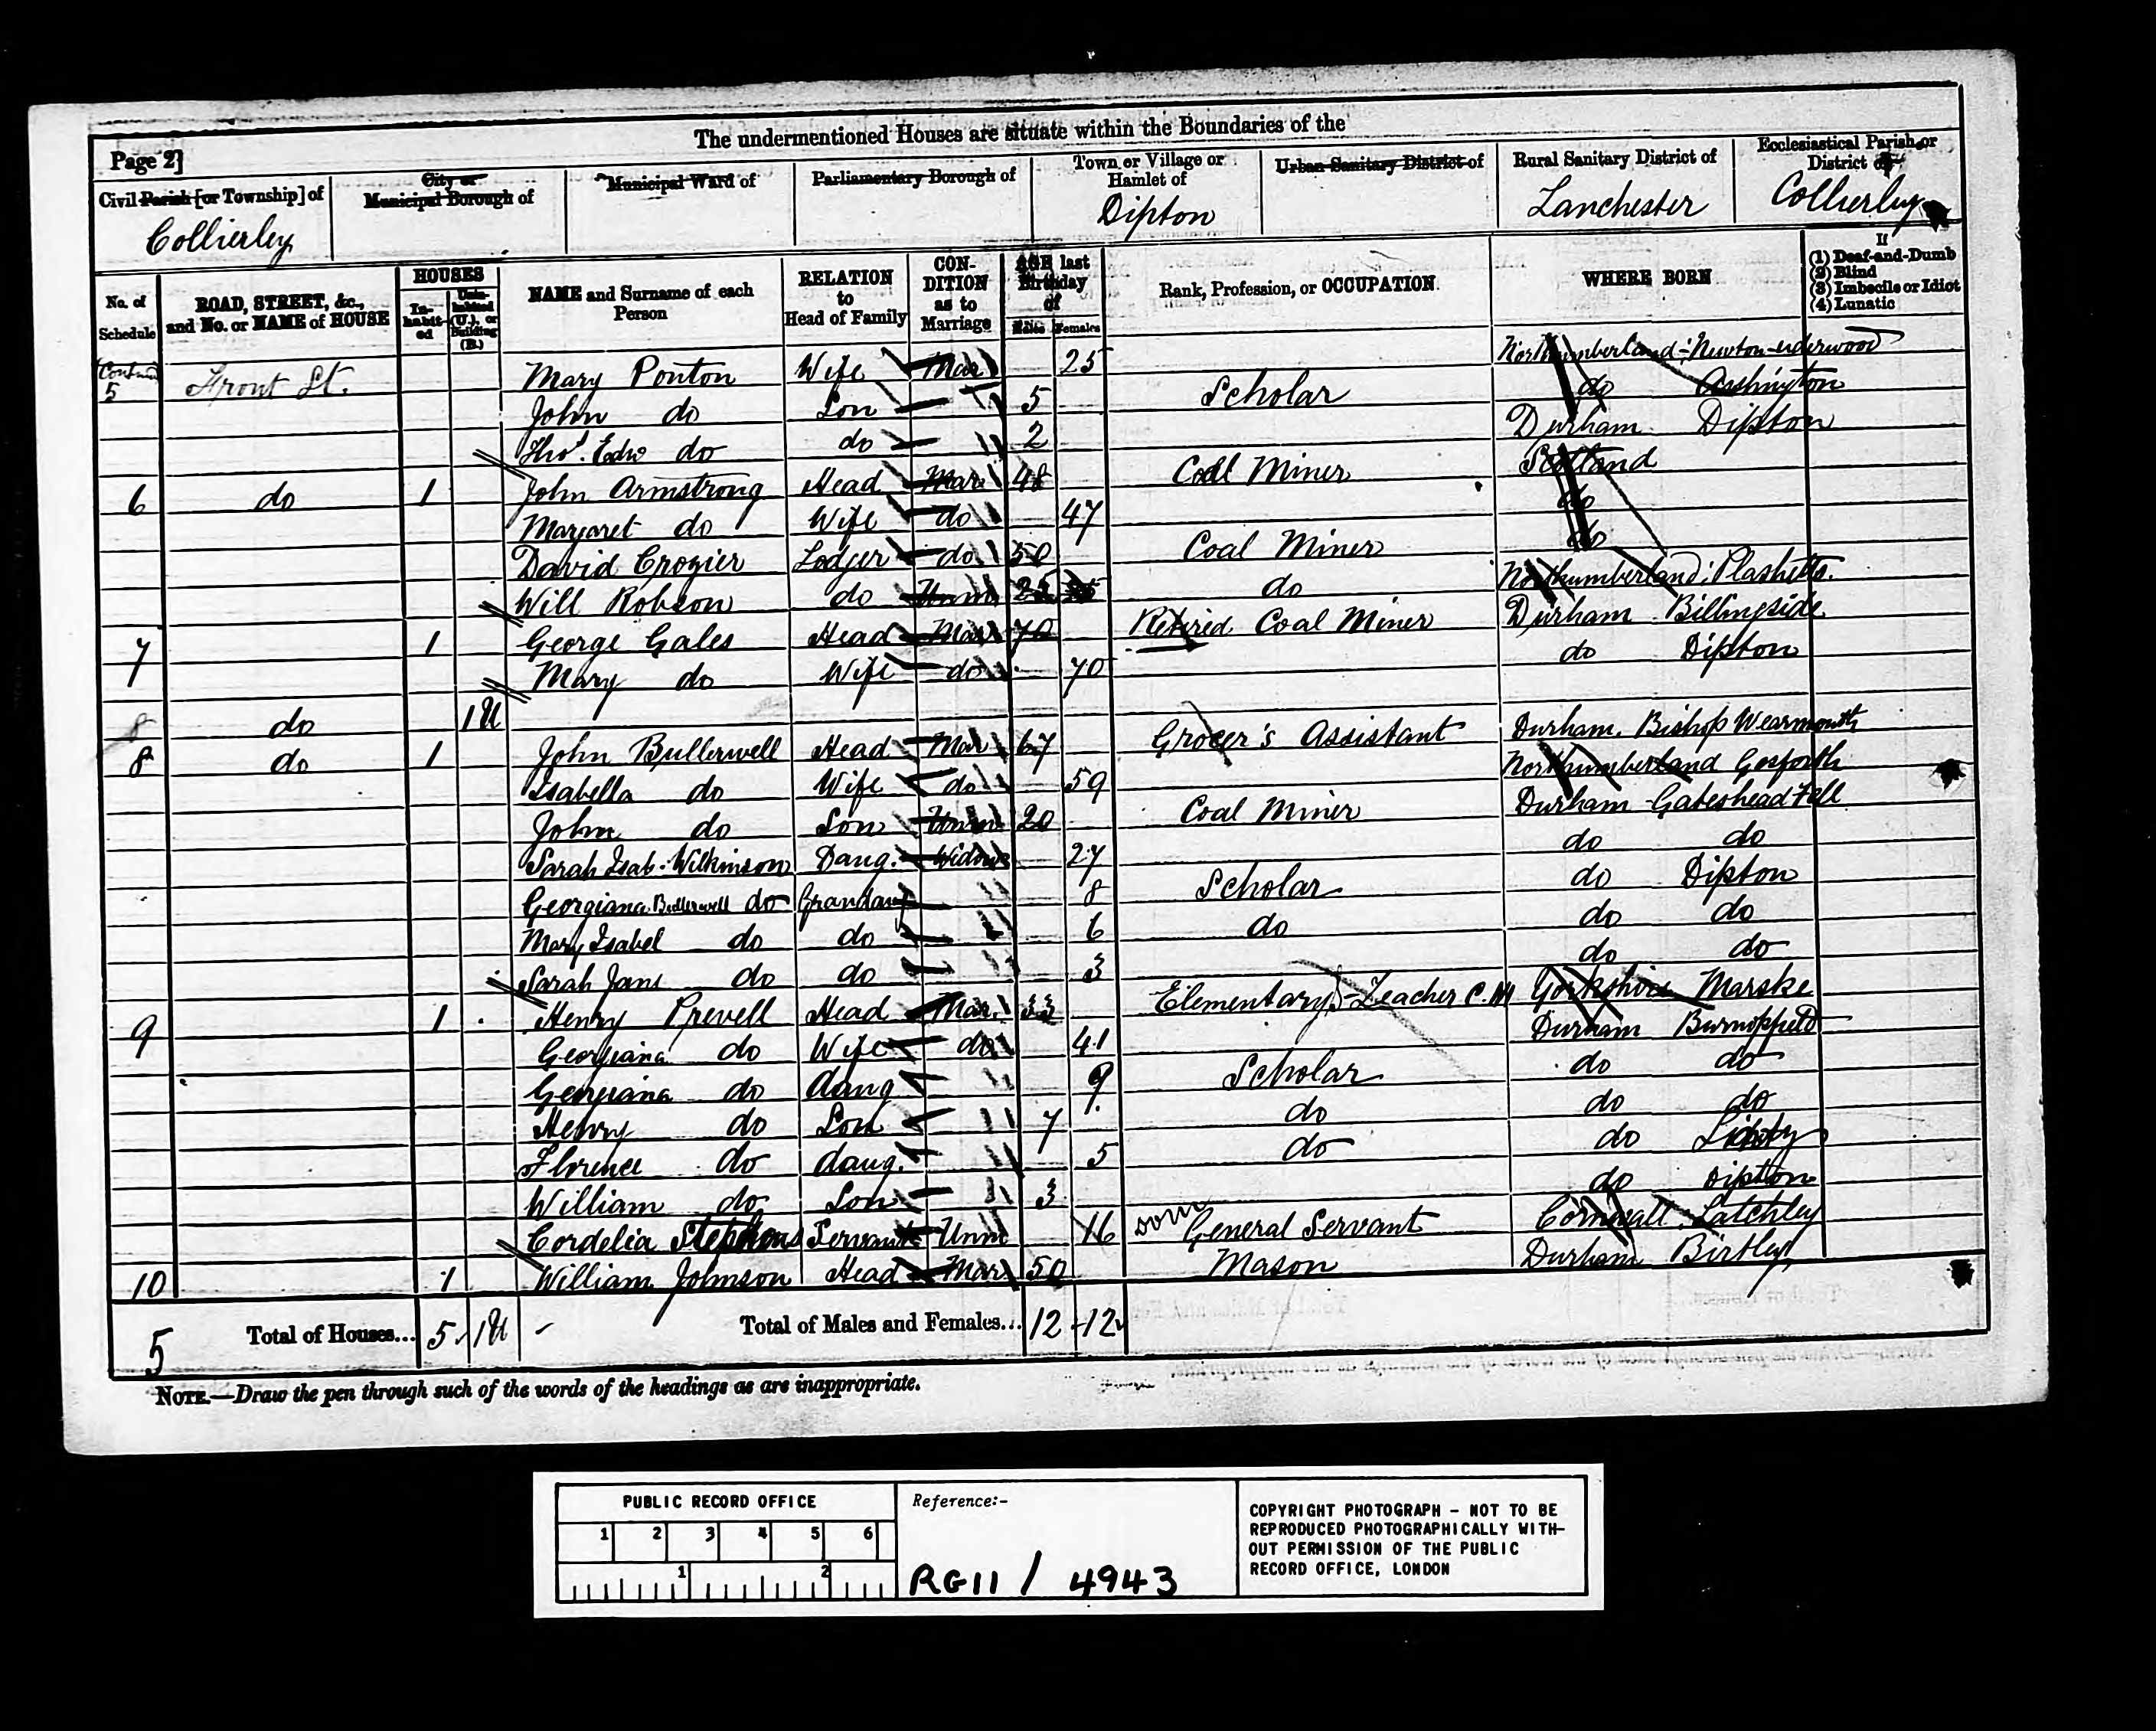 The undermentioned Houses are situate within the Boundaries of the
Page 2]
Civil Parish [or Township] of
Collierley
City or
Municipal Borough of
Municipal Ward of
Parliamentary Borough of
Town or Village or
Hamlet of
Dipton
Urban Sanitary District of
Rural Sanitary District of
Lanchester
Ecclesiastical Parish or
District of
Collierley
No. of
Schedule
ROAD, STREET, &c.,
and No. or NAME of HOUSE
HOUSES
In-
habit-
ed
Unin-
habited
(U.), or
Building
(B.)
NAME and Surname of each
Person
RELATION
to
Head of Family
CON-
DITION
as to
Marriage
AGE last
Birthday
of
Males Females
Rank, Profession, or OCCUPATION
WHERE BORN
If
(1) Deaf-and-Dumb
(2) Blind
(3) Imbecile or Idiot
(4) Lunatic
5 Front St. Mary Ponton Wife Mar 25 Northumberland: Newton-underwood
John do Son 5 Scholar do Asshington
Thos. Edw do do 2 Durham Dipton
6 do 1 John Armstrong Head Mar 48 Coal Miner Scotland
Margaret do Wife do 47 do
David Crozier Lodger do 50 Coal Miner do
Will Robson do Unm 25 do Northumberland: Plashetts.
7 1 George Gales Head Mar 70 Retired Coal Miner Durham Billingside
Mary do Wife do 70 do Dipton
8 do 1 U
8 do 1 John Bullerwell Head Mar 67 Grocer's Assistant Durham. Bishop Wearmouth
Isabella do Wife do 59 Northumberland Gosforth
John do Son Unm 20 Coal Miner Durham - Gateshead Fell
Sarah Isab. Wilkinson Daug. Widow 27 do do
Georgiana Bullerwell do Grandaug 8 Scholar do Dipton
Mary Isabel do do 6 do do do
Sarah Jane do do 3 do do
9 1 Henry Prevell Head Mar. 33 Elementary Teacher C.M Yorkshire Marske
Georgiana do Wife do 41 Durham Burnopfield
Georgiana do daug 9 Scholar do do
Henry do Son 7 do do do
Florence do daug. 5 do do
William do Son 3 do Dipton
Cordelia Stephens Servant Unm 16 General Servant Cornwall: Latchley
10 1 William Johnson Head Mar 50 Mason Durham Birtley
5 Total of Houses... 5 1 U Total of Males and Females... 12 12
NOTE.—Draw the pen through such of the words of the headings as are inappropriate.
PUBLIC RECORD OFFICE
1 2 3 4 5 6
1 2
Reference:-
RG11 / 4943
COPYRIGHT PHOTOGRAPH - NOT TO BE
REPRODUCED PHOTOGRAPHICALLY WITH-
OUT PERMISSION OF THE PUBLIC
RECORD OFFICE, LONDON